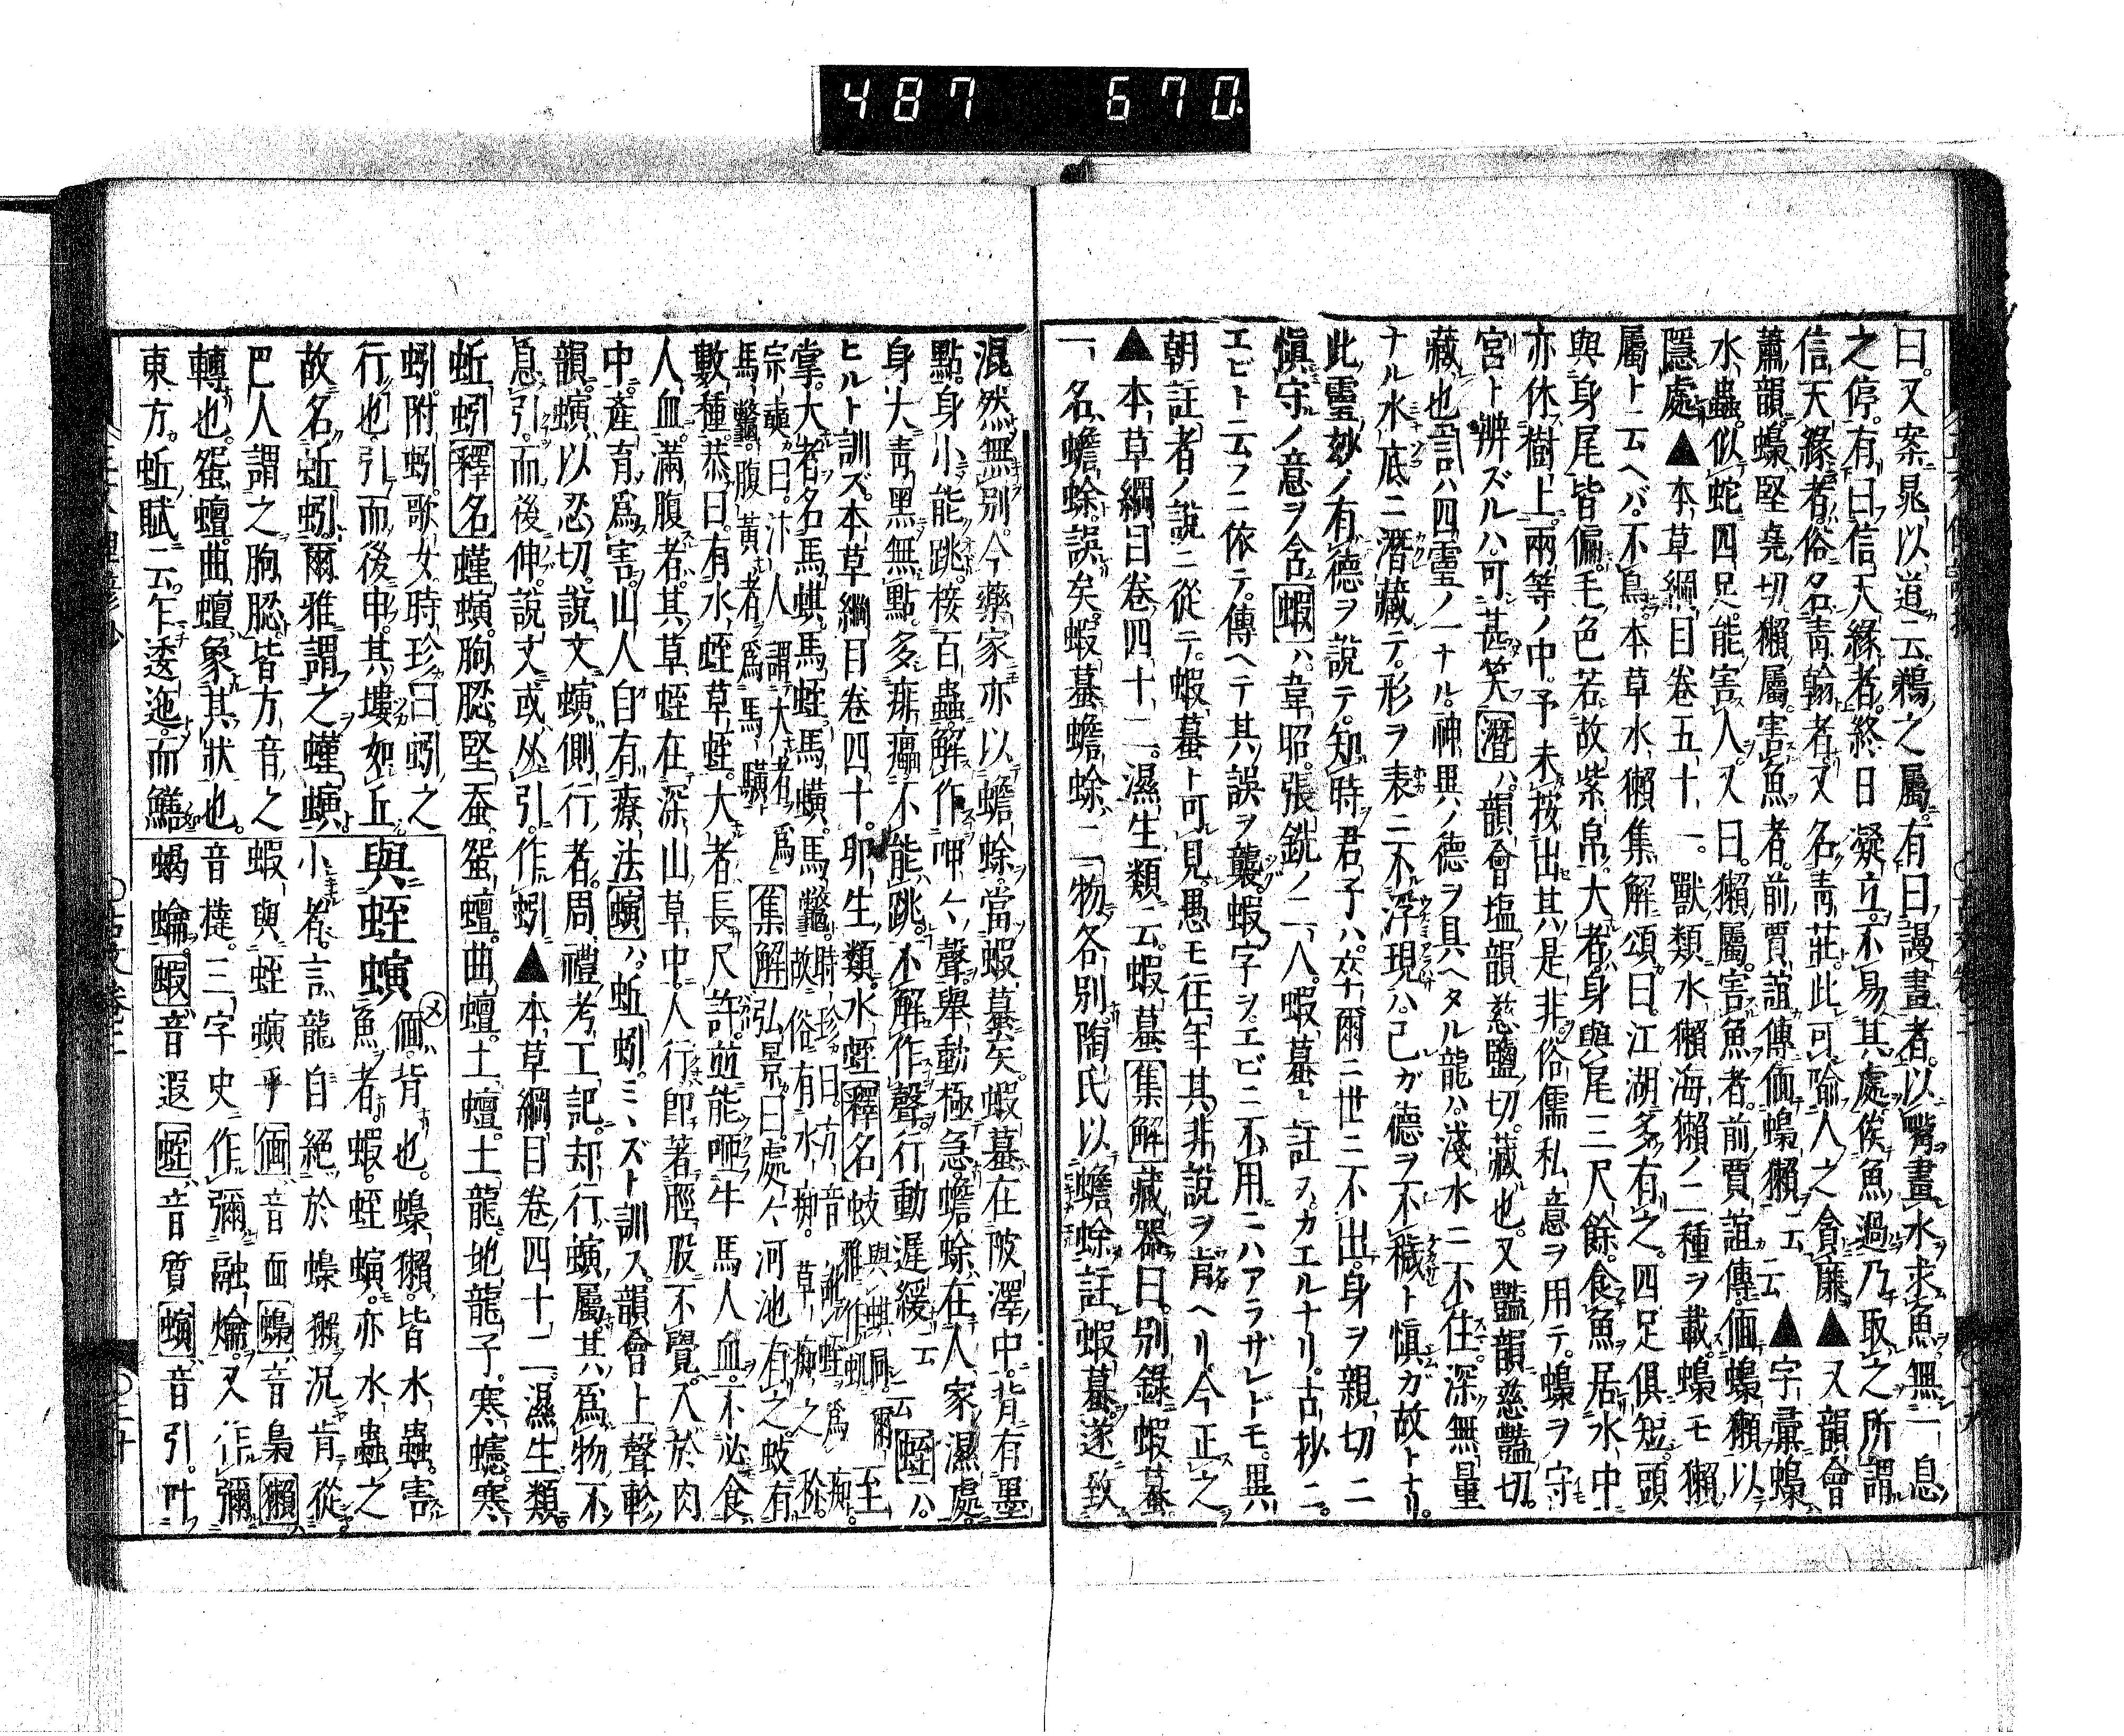 487 670
曰。又案晁以道云。鶘之屬。有曰謾畫者。以嘴畫水求魚。無一息
之停。有曰信天緣者。終日凝立。不易其處。俟魚過乃取之。所謂
信天緣者。俗名靑翰者。又名靑莊。此可喻人之貪廉▲又韻會
蕭韻。蟂堅堯切獺屬。害魚者。前賈誼傳偭蟂獺ヲ云云▲字彙蟂
水蟲。似蛇四足。能害人。又曰。獺屬。害魚者。前賈誼傳。偭蟂獺以
隱處▲本草綱目卷五十一。獸類水獺海獺ノ二種ヲ載。蟂モ獺
屬ト云ヘバ。不鳥。本草水獺集解頌曰。江湖多有之。四足俱短。頭
與身尾皆偏。毛色若故紫帛。大者身與尾三尺餘。食魚居水中
亦休樹上。兩等ノ中。予未按出其是非。俗儒私意ヲ用テ。蟂ヲ守
宮ト辨ズルハ。可甚笑潛ハ。韻會塩韻慈鹽切。藏也。又豔韻慈豔切。
藏也言ハ四靈ノ一ナル。神異ノ德ヲ具ヘタル龍ハ。淺水ニ不住。深無量
ナル水底ニ潛藏テ。形ヲ表ニ不浮現ハ。己ガ德ヲ不穢ト愼ガ故トナリ。
此靈妙ノ有德ヲ說テ。知時君子ハ。卒爾ニ世ニ不出。身ヲ親切ニ
愼守ノ意ヲ含蝦ハ。韋昭。張銑ノ二人。蝦蟇ト註ス。カエルナリ。古抄ニ。
エビト云フニ依テ。傳ヘテ其誤ヲ襲。蝦字ヲ。エビニ不用ニハアラザレドモ。異
朝註者ノ說ニ從テ。蝦蟇ト可見。愚モ往年其非說ヲ肯ヘリ。今正之
▲本草綱目卷四十二。濕生類云。蝦蟇集解藏器曰。別錄蝦蟇
一名蟾蜍。誤矣。蝦蟇蟾蜍。二物各別。陶氏以蟾蜍註蝦蟇。遂致
混然無別。今藥家亦以蟾蜍。當蝦蟇矣。蝦蟇在陂澤中。背有墨
點。身小能跳。接百蟲。解作呷呷聲。舉動極急。蟾蜍在人家濕處。
身大靑黑無點。多痱癗不能跳。不解作聲。行動遲緩云云蛭ハ。
ヒルト訓ズ。本草綱目卷四十。卵生類。水蛭釋名蚑與蜞同。爾雅作蟣至
掌。大者名馬蜞馬蛭馬蟥。馬鼈時珍曰。方音訛蛭爲痴。故俗有水痴。草痴之稱。
宗奭曰。汴人謂大者爲馬鼈。腹黃者ヲ爲馬蟥集解弘景曰。處處河池有之。蚑有
數種。恭曰。有水蛭草蛭。大者長尺許。並能咂牛馬人血。不必食
人血滿腹者。其草蛭在深山草中。人行即著脛股不覺。入於肉
中產育爲害。山人自有療法螾ハ。蚯蚓。ミミズト訓ス。韻會上聲軫
韻。螾以忍切。說文螾側行者。周禮考工記。却行螾屬。其爲物不
息引而後伸。說文或从引。作蚓▲本草綱目卷四十二。濕生類
蚯蚓釋名螼螾。朐䏰。堅蚕。䖤蟺。曲蟺。土蟺。土龍。地龍子。寒蠵。寒
蚓。附蚓。歌女。時珍曰。蚓之
行也引而後申。其塿如丘
故名蚯蚓。爾雅謂之螼螾
巴人謂之朐䏰。皆方音之
轉也。䖤蟺曲蟺。象其狀也。
東方虬賦云。乍逶迤而鱔
與蛭螾偭。背也。蟂獺。皆水蟲。害
魚者。蝦。蛭螾。亦水蟲之
小者。言龍自絕於蟂獺況肯從
蝦與蛭螾乎偭音面蟂音梟獺
音㒓。三字史作彌融爚。又作彌
蝎蜦。蝦音遐蛭音質螾音引。叶